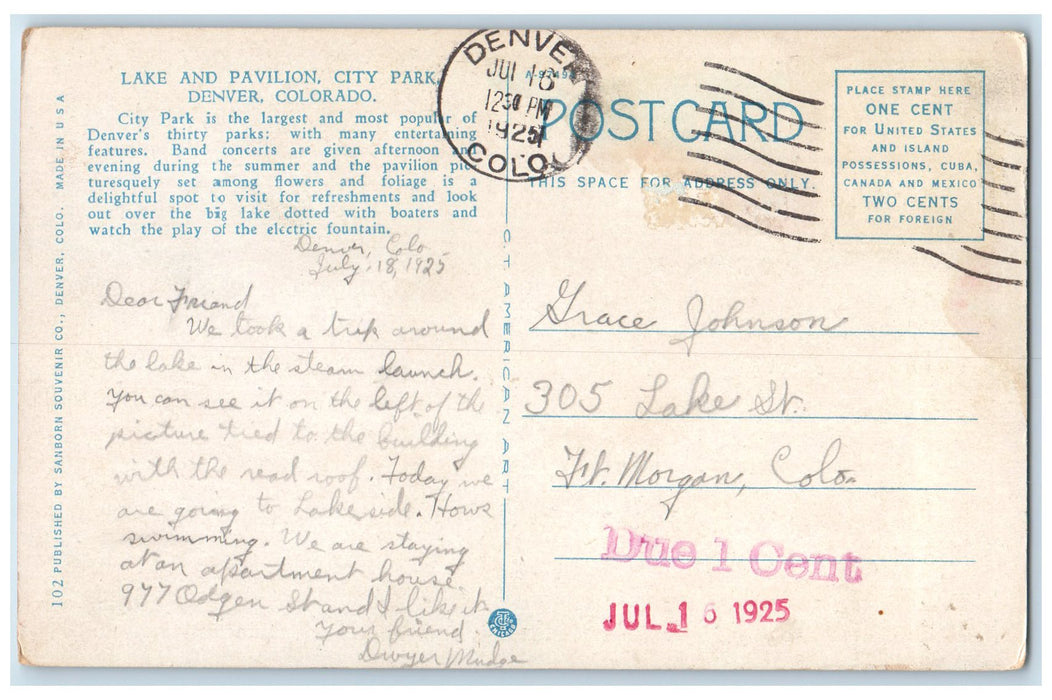 LAKE AND PAVILION, CITY PARK,
DENVER, COLORADO.
City Park is the largest and most popular of
Denver's thirty parks; with many entertaining
features. Band concerts are given afternoon and
evening during the summer and the pavilion pic-
turesquely set among flowers and foliage is a
delightful spot to visit for refreshments and look
out over the big lake dotted with boaters and
watch the play of the electric fountain.
Denver, Colo.
July, 18, 1925
Dear Friend
We took a trip around
the lake in the steam launch.
You can see it on the left of the
picture tied to the building
with the read roof. Today we
are going to Lakeside. Hows
swimming. We are staying
at an apartment house
977 Odgen St and I like it
Your friend
Dwyer Mudge
102 PUBLISHED BY SANBORN SOUVENIR CO., DENVER, COLO. MADE IN USA
C.T. AMERICAN ART
CHICAGO
DENVER
JUL 16
1230 PM
1925
COLO.
POST CARD
THIS SPACE FOR ADDRESS ONLY.
PLACE STAMP HERE
ONE CENT
FOR UNITED STATES
AND ISLAND
POSSESSIONS, CUBA,
CANADA AND MEXICO
TWO CENTS
FOR FOREIGN
Grace Johnson
305 Lake St.
Ft. Morgan, Colo.
Due 1 Cent
JUL 16 1925